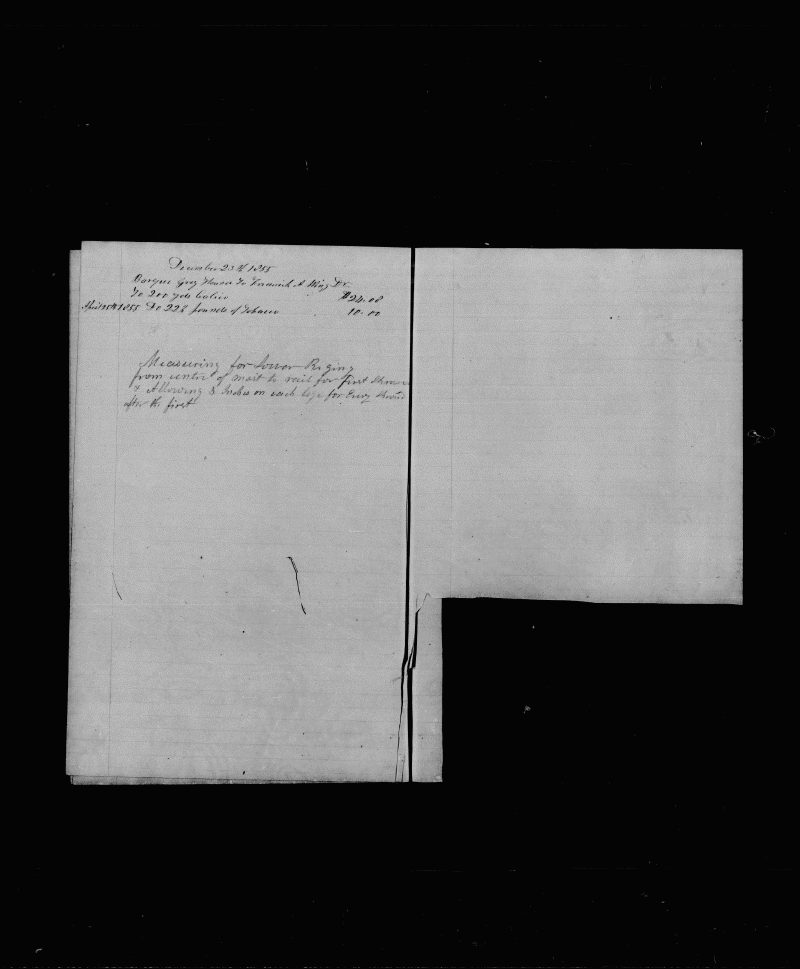 December 23th 1855
Barque Grey Hound To Frederick A King Dr
To 200 yds Calico $24.08
April 25th 1855 Do 228 pounds of Tobacco 10.00
Measuring for lower Riging
from center of mast to rail for first
& Allowing 3 Inches on each legs for Every Shroud
after the first